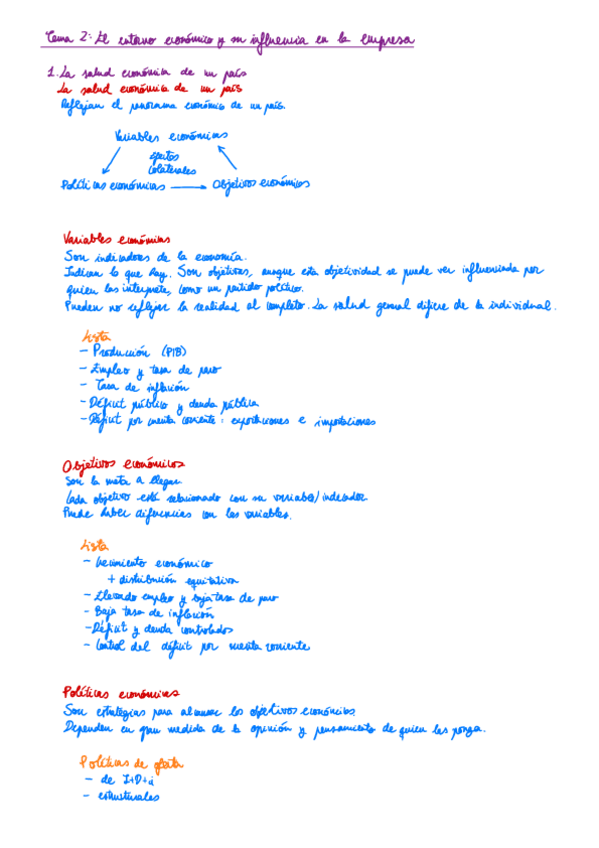 Tema 2: El entorno económico y su influencia en la empresa
1. La salud económica de un país
La salud económica de un país
Reflejan el panorama económico de un país.
Variables económicas
efectos
colaterales
Políticas económicas
Objetivos económicos
Variables económicas
Son indicadores de la economía.
Indican lo que hay. Son objetivas, aunque esta objetividad se puede ver influenciada por
quien las interprete, como un partido político.
Pueden no reflejar la realidad al completo. La salud general difiere de la individual.
Lista
- Producción (PIB)
- Empleo y tasa de paro
- Tasa de inflación
- Déficit público y deuda pública
- Déficit por cuenta corriente: exportaciones e importaciones
Objetivos económicos
Son la meta a llegar.
Cada objetivo está relacionado con su variable/indicador.
Puede haber diferencias con las variables.
Lista
- Crecimiento económico
+ distribución equitativa
- Elevado empleo y baja tasa de paro
- Baja tasa de inflación
- Déficit y deuda controlados
- Control del déficit por cuenta corriente
Políticas económicas
Son estrategias para alcanzar los objetivos económicos.
Dependen en gran medida de la opinión y pensamiento de quien las ponga.
Políticas de oferta
- de I+D+i
- estructurales